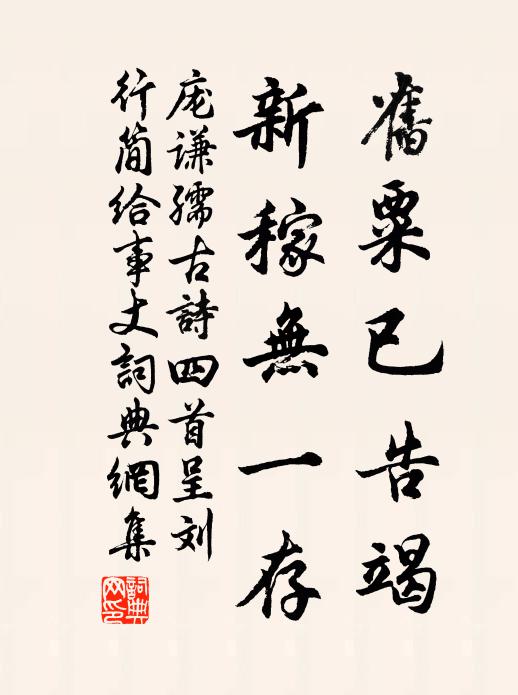 舊粟已告竭
新稼無一存
庞謙孺古詩四首呈刘
行简给事丈詞典網集
詞典網印